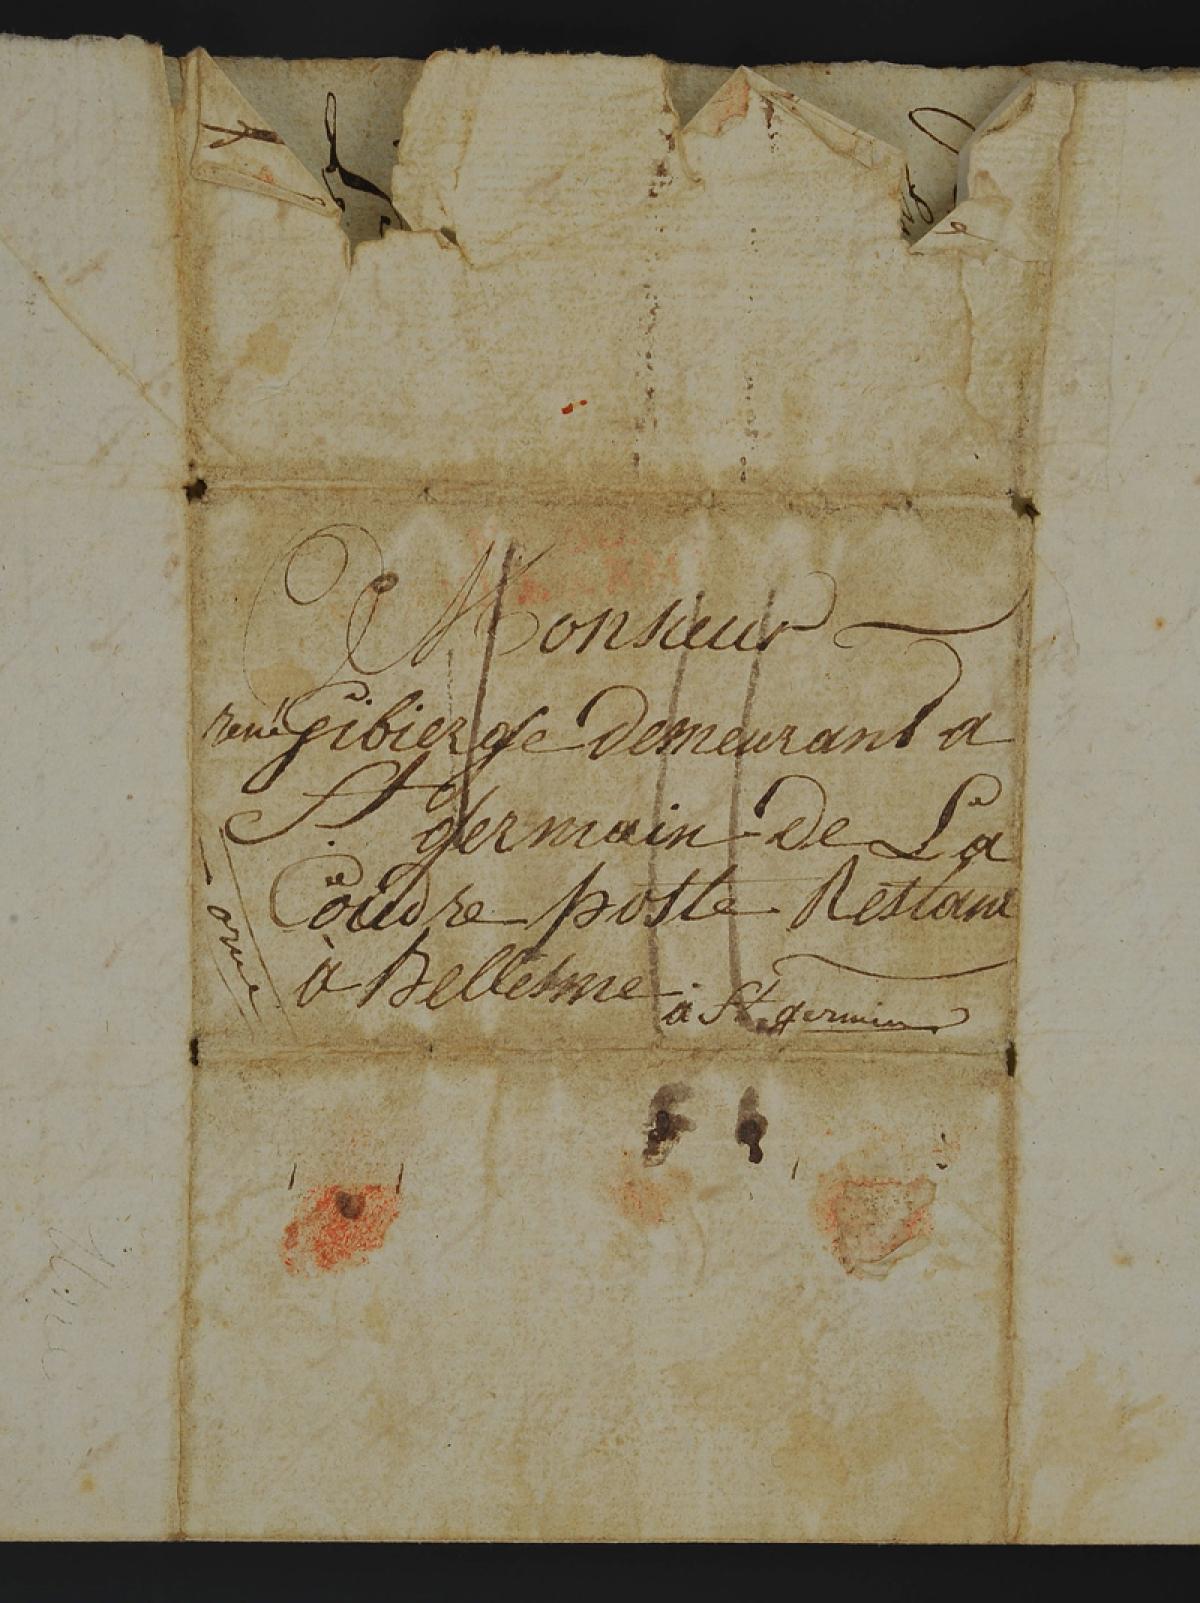 Monsieur
rené gibierge demeurant a
St germain de La
Coudre poste Restante
à Bellesme à St germin
orne